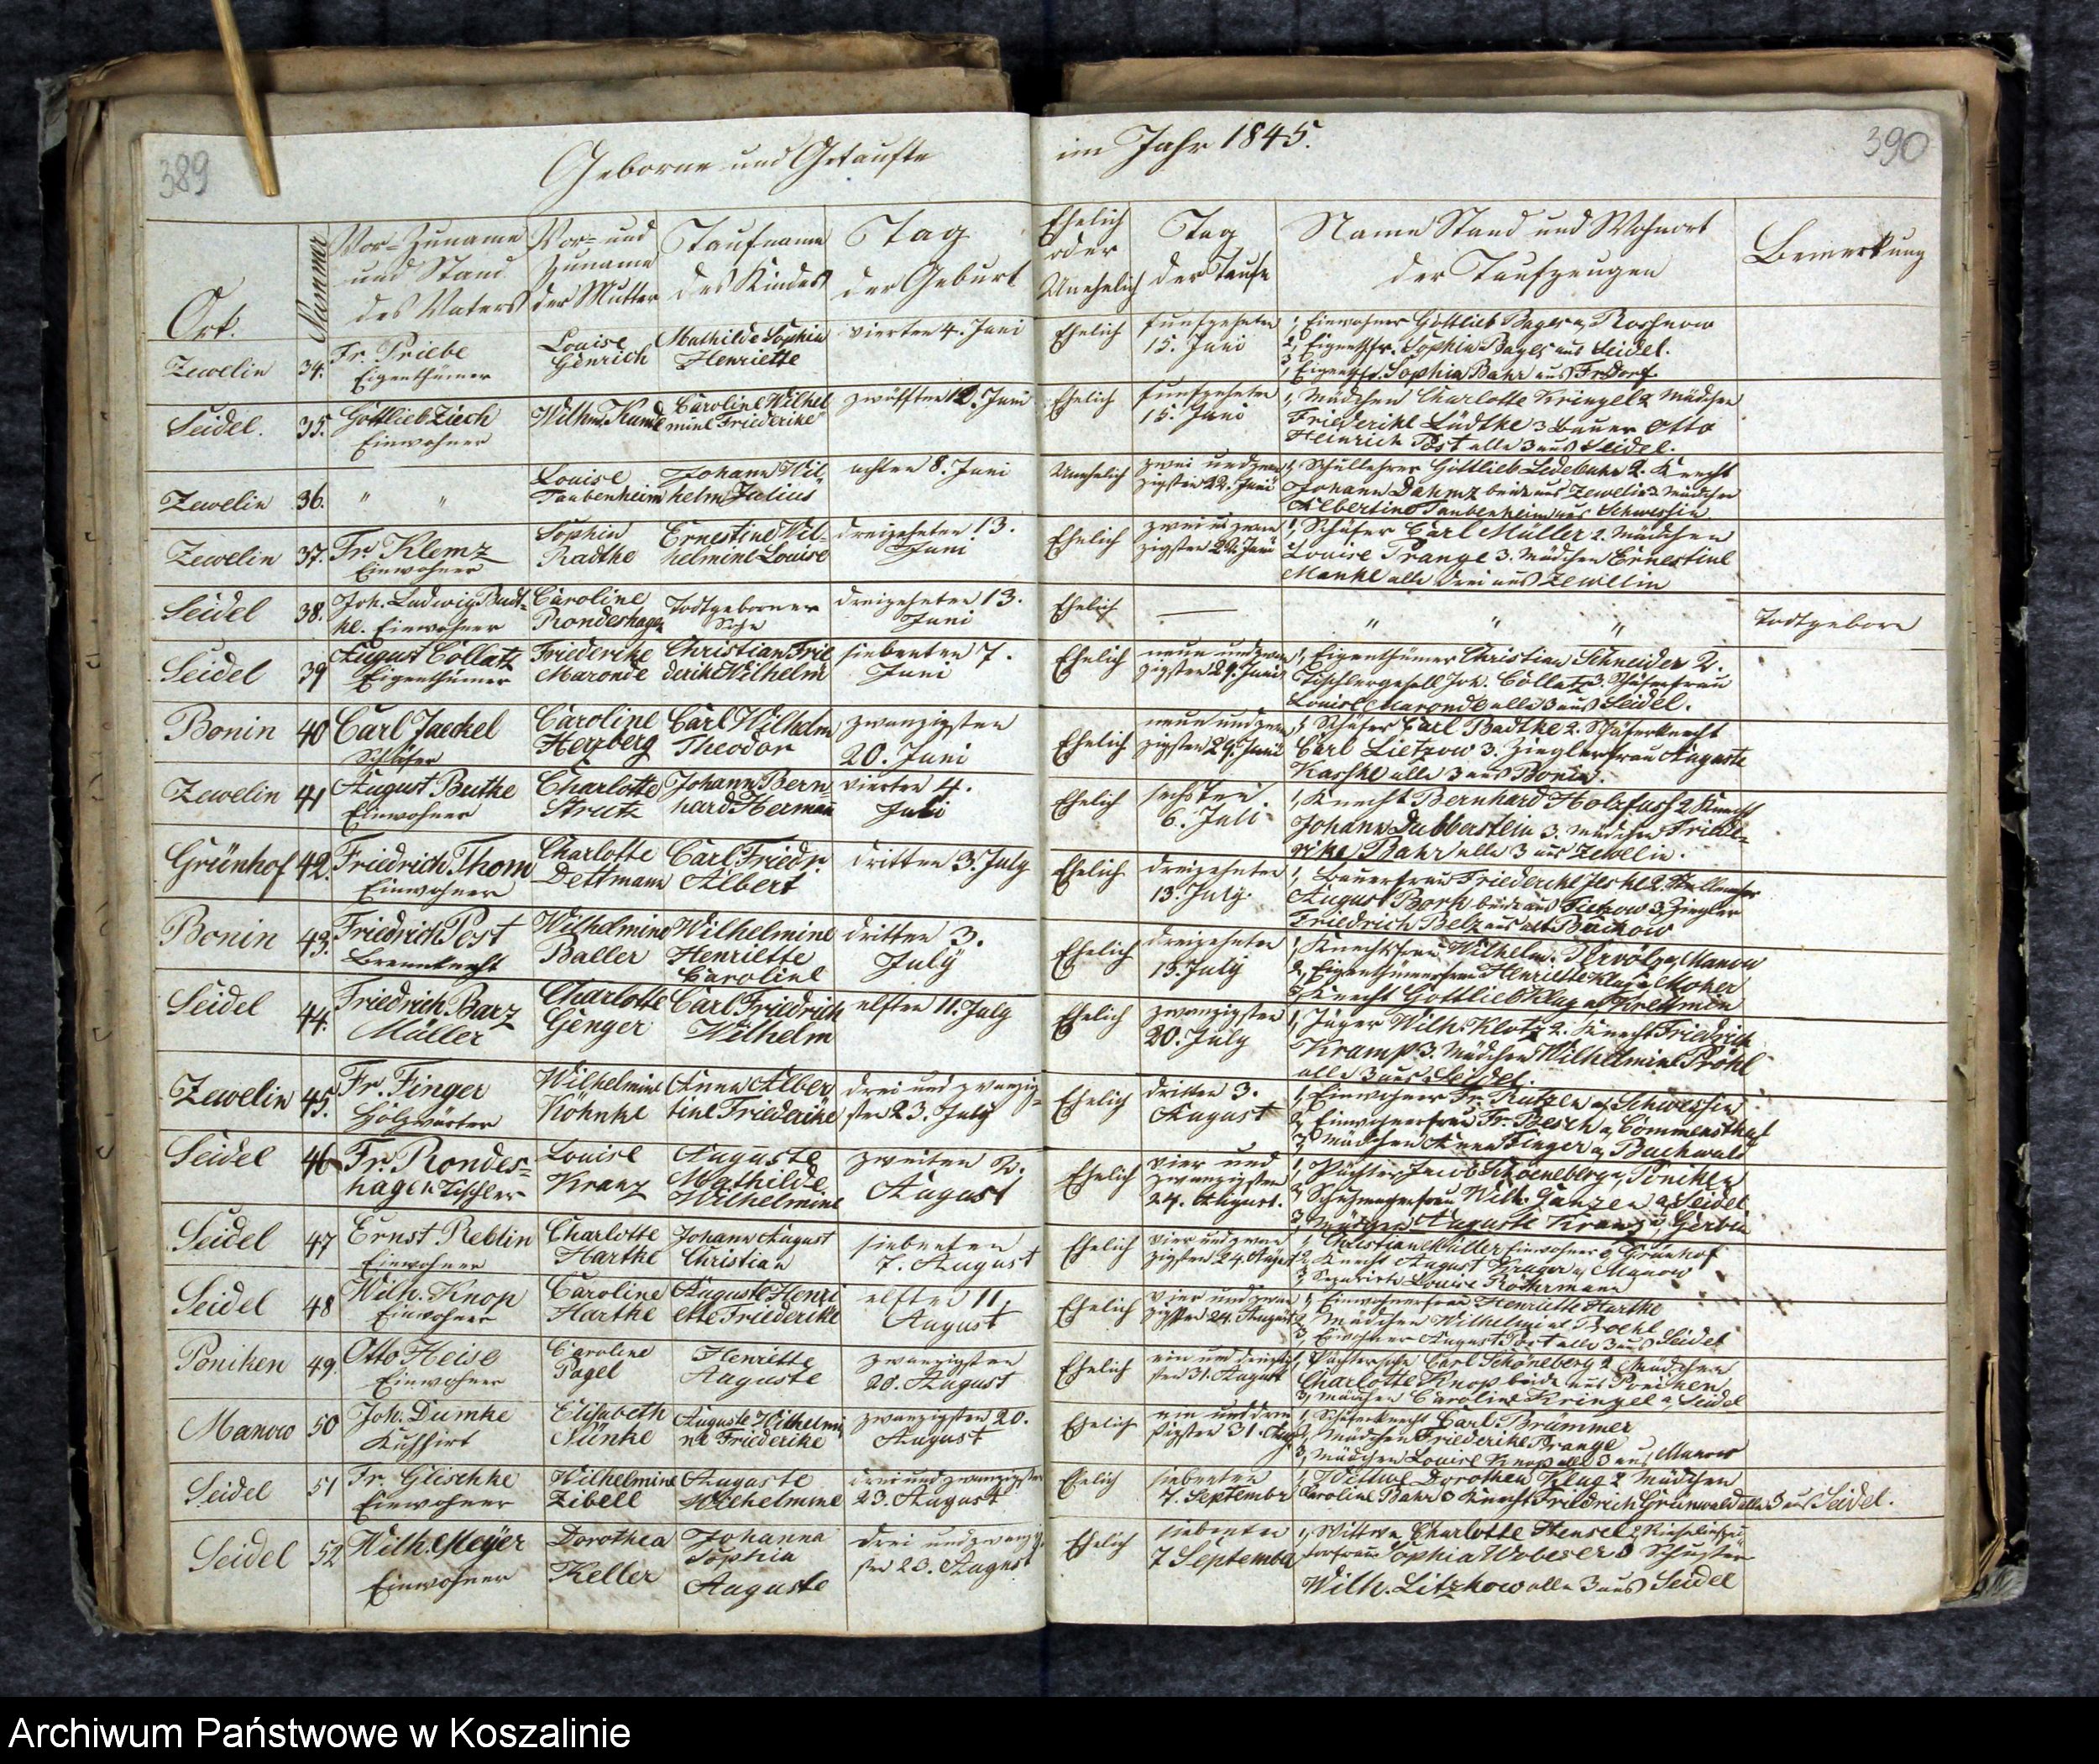 389
Geborne und Getaufte
im Jahr 1845.
390
Ort.
Nummer
Vor- Zuname
und Stand
des Vaters
Vor- und
Zuname
der Mutter
Taufname
des Kindes
Tag
der Geburt
Ehelich
oder
Unehelich
Tag
der Taufe
Name Stand und Wohnort
der Taufzeugen
Bemerkung
Zewelin 34. Fr. Priebe
Eigenthümer
Louise
Genrich
Mathilde Sophia
Henriette
vierten 4. Juni
Ehelich
funfzehnten
15. Juni
1, Einwohner Gottlieb Bages a, Roßnow
2, Sophia Bages aus Seidel.
3, Sophia Bahr aus
Seidel. 35. Gottlieb Ziech
Einwohner
Wilhm. Kamke
Caroline Wilhel
mine Friederike
zwölften 12. Juni
Ehelich
funfzehnten
15. Juni
1, Mädchen Charlotte Kringel 2 Mädchen
Friederike Lüdtke 3 Bauer Otto
Heinrich Post alle 3 aus Seidel.
Zewelin 36. " "
Louise
Taubenheim
Johann Wil-
helm Julius
achten 8. Juni
Unehelich
zwei und zwan
zigsten 22. Juni
1, Schullehrer Gottlieb Ledebuhr 2. Knecht
Johann Dahmz beide aus Zewelin 3 Mädchen
Albertine Taubenheim aus Schwessin
Zewelin 37. Fr. Klemz
Einwohner
Sophia
Radtke
Ernestine Wil-
helmine Louise
dreizehnten 13.
Juni
Ehelich
zwei u zwan
zigsten 22. Juni
1, Schäfer Carl Müller 2. Mädchen
Louise Prange 3. Mädchen Ernestine
Manke alle drei aus Zewellin
Seidel 38. Joh. Ludwig Budt-
ke. Einwohner
Caroline
Rondeshagen
Todtgeborner
Sohn
dreizehnten 13.
Juni
Ehelich
—
" " "
Todtgeborn
Seidel 39 August Collatz
Eigenthümer
Friederike
Maronde
Christian Frie
derike Wilhelm
siebenten 7.
Juni
Ehelich
neun und zwan
zigsten 29. Juni
1, Eigenthümer Christian Schneider 2.
Tischlergesell Joh. Collatz 3. Schäferfrau
Louise Maronde alle 3 aus Seidel.
Bonin 40 Carl Jaeckel
Schäfer
Caroline
Herzberg
Carl Wilhelm
Theodor
zwanzigsten
20. Juni
Ehelich
neun und zwan
zigsten 29. Juni
1, Schäfer Carl Badtke 2. Schäferknecht
Carl Lietzow 3. Zieglerfrau Auguste
Kaschke alle 3 aus Bonin.
Zewelin 41 August Buthe
Einwohner
Charlotte
Strutz
Johann Bern
hard Hermann
vierten 4.
Juli
Ehelich
sechsten
6. Juli
1, Knecht Bernhard Holzfuss 2 Knecht
Johann Dubberstein 3. Mädchen Friede-
rike Bahr alle 3 aus Zewelin.
Grünhof 42. Friedrich Thom
Einwohner
Charlotte
Dettmann
Carl Friedr.
Albert
dritten 3. July
Ehelich
dreizehnten
13. July.
1, Bauerfrau Friederike Jeske 2. Stellmacher
August Bork beide aus 3. Ziegler
Friedrich Belz aus
Bonin 43. Friedrich Post
Brennknecht
Wilhelmine
Baller
Wilhelmine
Henriette
Caroline
dritten 3.
July
Ehelich
dreizehnten
13. July
1, Knechtsfrau Wilhelm. a, Manow
2, Eigenthümerfrau Henriette Klug a,
3, Knecht Gottlieb Klug a,
Seidel 44. Friedrich Barz
Müller
Charlotte
Genger
Carl Friedrich
Wilhelm
elften 11. July
Ehelich
zwanzigsten
20. July
1, Jäger Wilh. Klotz 2. Knecht Friedrich
Kramp 3. Mädchen Wilhelmine Pröhl
alle 3 aus Seidel.
Zewelin 45. Fr. Finger
Holzwärter
Wilhelmine
Köhnke
Anna Alber
tine Friederike
drei und zwanzig-
sten 23. July
Ehelich
dritten 3.
August
1, Einwohner Fr. Kutzer a, Schwessin
2, Einwohnerfrau Fr. Besch a,
3, Mädchen Anna Finger a, Buchwald
Seidel 46 Fr. Rondes-
hagen Tischler
Louise
Kranz
Auguste
Mathilde
Wilhelmine
zweiten 2.
August
Ehelich
vier und
zwanzigsten
24. August.
1, Pächter Jacob Schoeneberg a, Poniken
2, Wilh. Ganzen a, Seidel
3, Mädchen Auguste Kranz a, Gerbin
Seidel 47 Ernst Reblin
Einwohner
Charlotte
Harthe
Johann August
Christian
siebenten
7. August
Ehelich
vier und zwan
zigsten 24. August
1, Christian Müller Einwohner a Grünhof
2 Knecht August Krüger a, Manow
3, Louise Röthrmann
Seidel 48 Wilh. Knop
Einwohner
Caroline
Harthe
Auguste Henri
ette Friederike
elften 11.
August
Ehelich
vier und zwan
zigsten 24. August
1, Einwohnerfrau Henriette Harthe
2, Mädchen Wilhelmine Boehl
3, Einwohner August Post alle 3 aus Seidel
Poniken 49. Otto Heise
Einwohner
Caroline
Pagel
Henriette
Auguste
zwanzigsten
20. August
Ehelich
ein und dreißig
sten 31. August
1, Pächtersohn Carl Schöneberg 2 Mädchen
Charlotte Knop beide aus Poniken
3, Mädchen Caroline Kringel a, Seidel
Manow 50 Joh. Dumke
Kuhhirt
Elisabeth
Nünke
Auguste Wilhelmi
ne Friederike
zwanzigsten 20.
August
Ehelich
ein und drei
ßigsten 31. Aug.
1, Schäferknecht Carl Brümmer
2, Mädchen Friederike Prange
3, Mädchen Louise Knop alle 3 aus Manow
Seidel 51 Fr. Glischke
Einwohner
Wilhelmine
Zibell
Auguste
Wilhelmine
drei und zwanzigsten
23. August
Ehelich
siebenten
7. Septembr
1, Wittwe Dorothea Klug 2 Mädchen
Caroline Bahr 3 Knecht Friedrich Grünwald alle 3 aus Seidel.
Seidel 52 Wilh. Meyer
Einwohner
Dorothea
Keller
Johanna
Sophia
Auguste
drei und zwanzig
sten 23. August
Ehelich
siebenten
7 September
1, Wittwe Charlotte Hensel 2,
Sophia Wobeser 3 Schuster
Wilh. Litzkow alle 3 aus Seidel
Archiwum Państwowe w Koszalinie